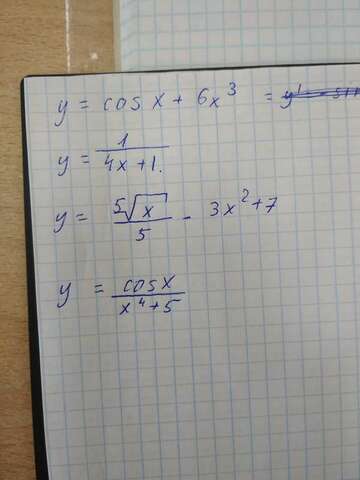 y = cos x + 6x³ =
y = 1/(4x+1.
y = ⁵√x/5 - 3x²+7
y = cos x/(x⁴+5)